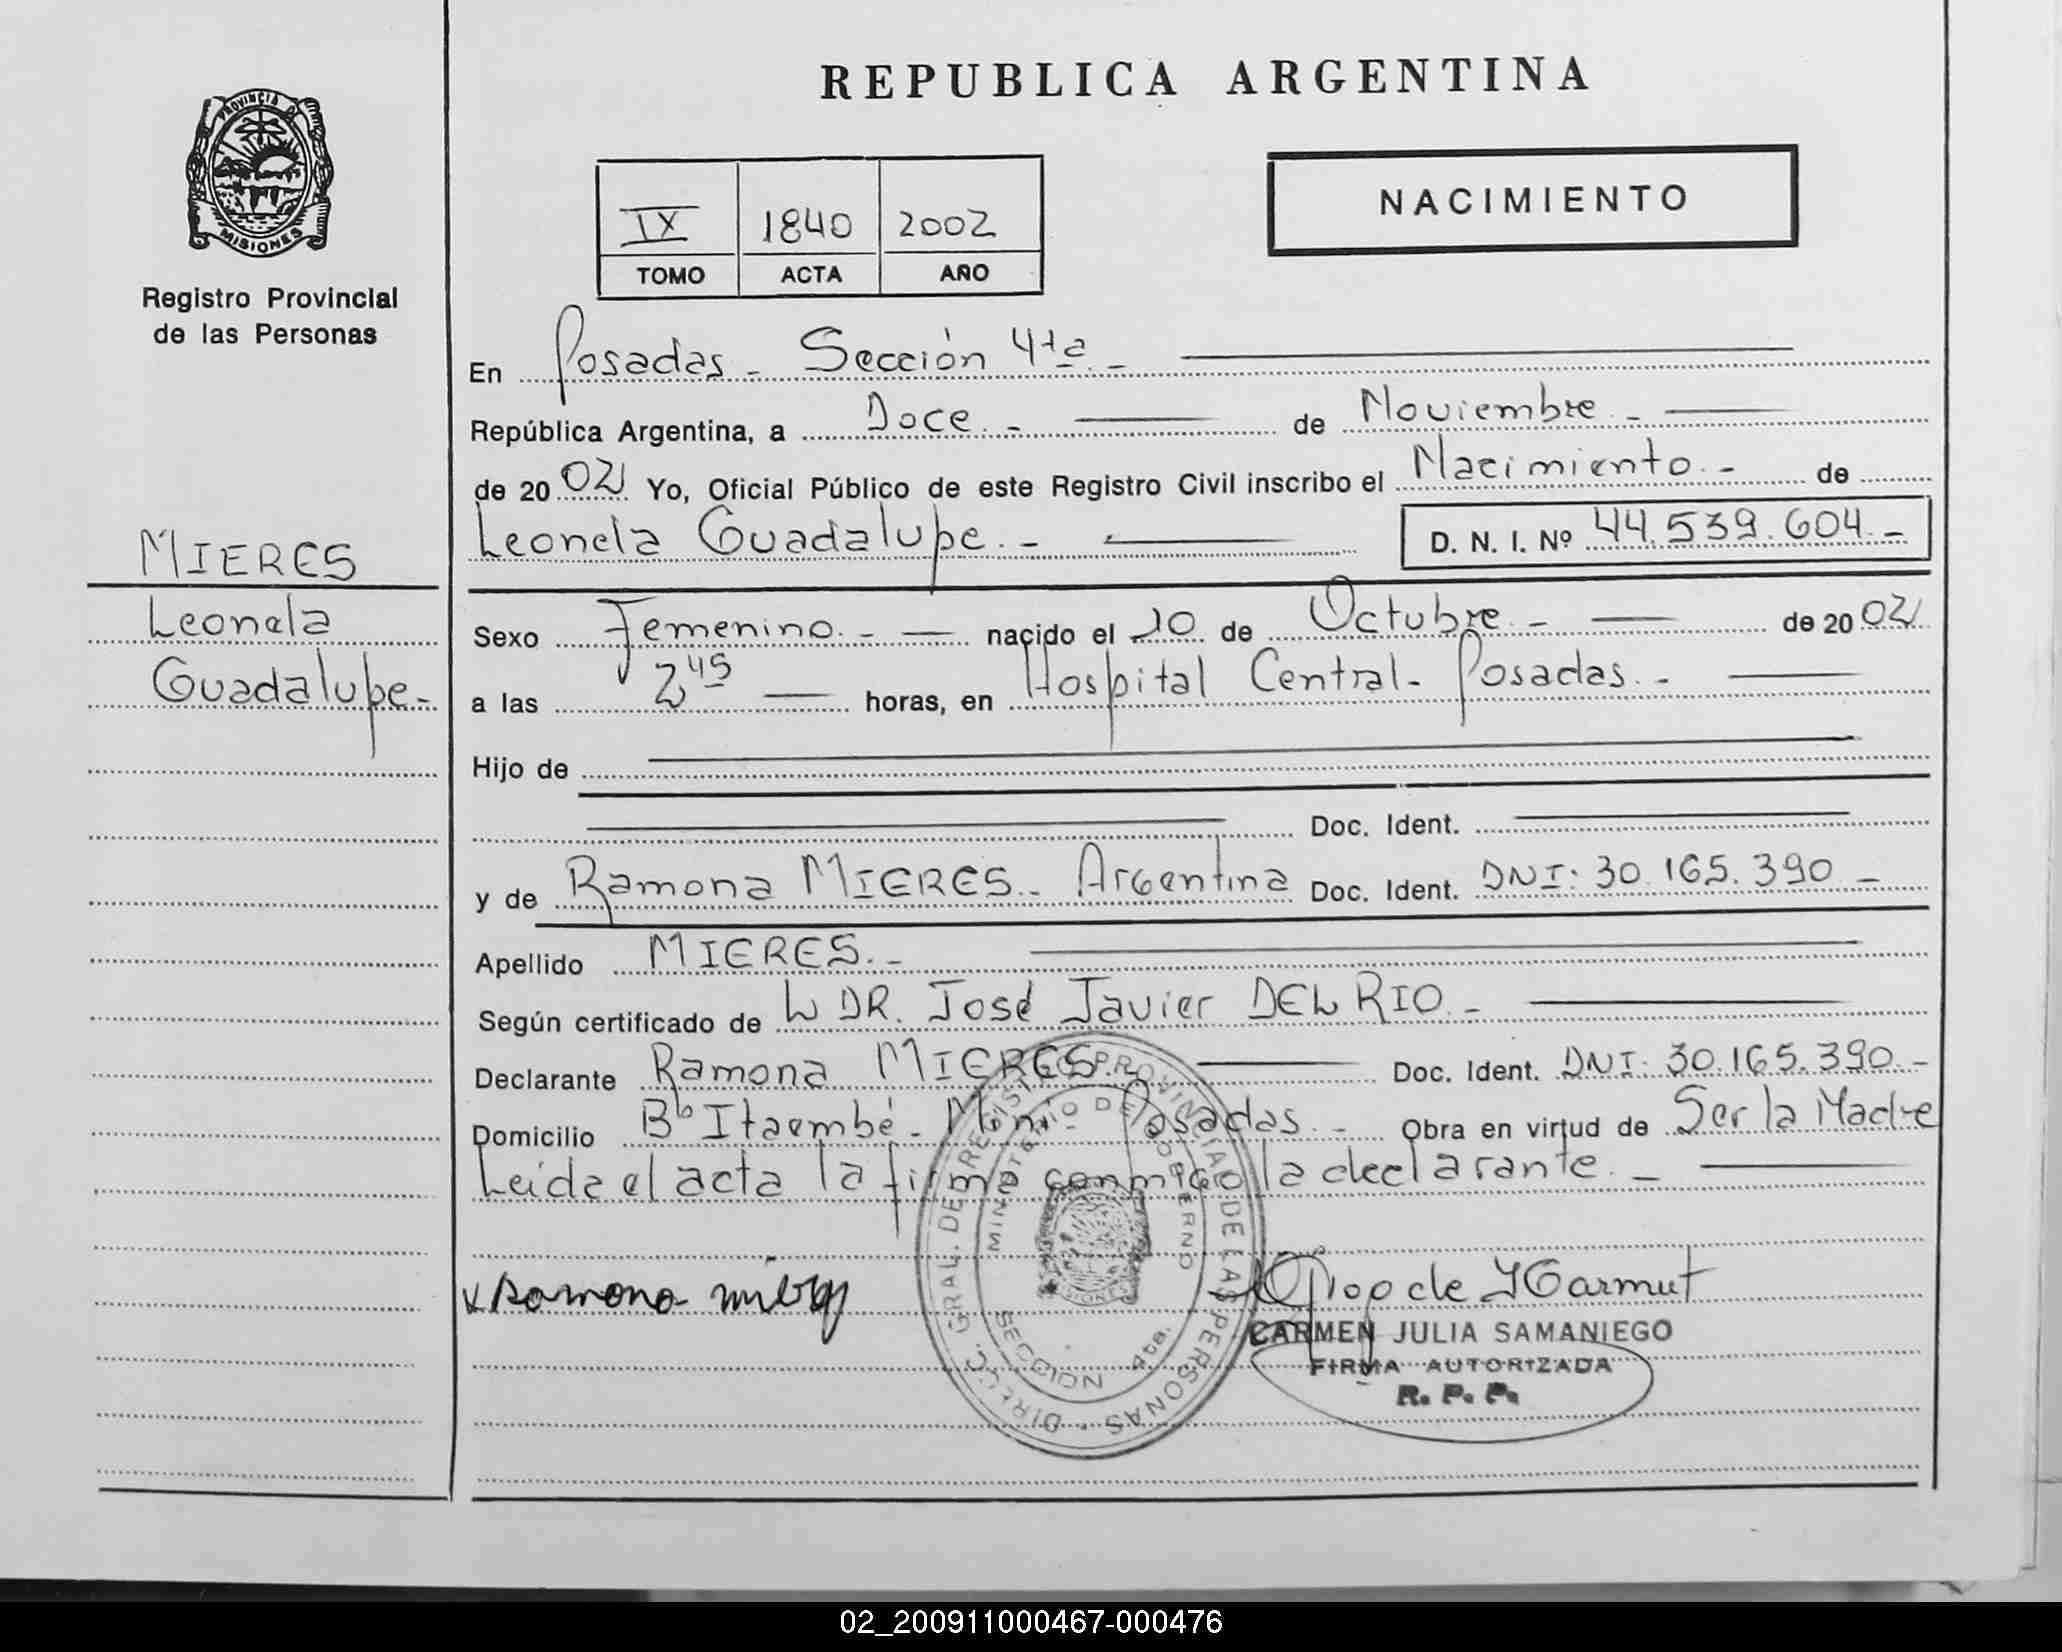 REPUBLICA ARGENTINA
PROVINCIA D
MISIONES
Registro Provincial
de las Personas
IX 1840 2002
TOMO ACTA AÑO
NACIMIENTO
En Posadas - Sección 4ta. -
República Argentina, a Doce. - de Noviembre. -
de 2002 Yo, Oficial Público de este Registro Civil inscribo el Nacimiento. - de
Leonela Guadalupe. - D. N. I. Nº 44.539.604. -
MIERES
Leonela
Guadalupe. -
Sexo Femenino. - nacido el 10 de Octubre. - de 2002
a las 2 45 horas, en Hospital Central - Posadas. -
Hijo de
Doc. Ident.
y de Ramona MIERES. - Argentina Doc. Ident. DNI: 30.165.390 -
Apellido MIERES. -
Según certificado de L DR. José Javier DEL RIO. -
Declarante Ramona MIERES. - Doc. Ident. DNI: 30.165.390. -
Domicilio Bº Itaembé - Miní - Posadas. - Obra en virtud de Ser la Madre
Leída el acta la firma conmigo la declarante. -
DIREC. GRAL. DE REGISTRO PROVINCIAL DE LAS PERSONAS
MINISTERIO DE GOBIERNO
MISIONES
SECCION 4ta.
Ramona
CARMEN JULIA SAMANIEGO
FIRMA AUTORIZADA
R. P. P.
02_200911000467-000476